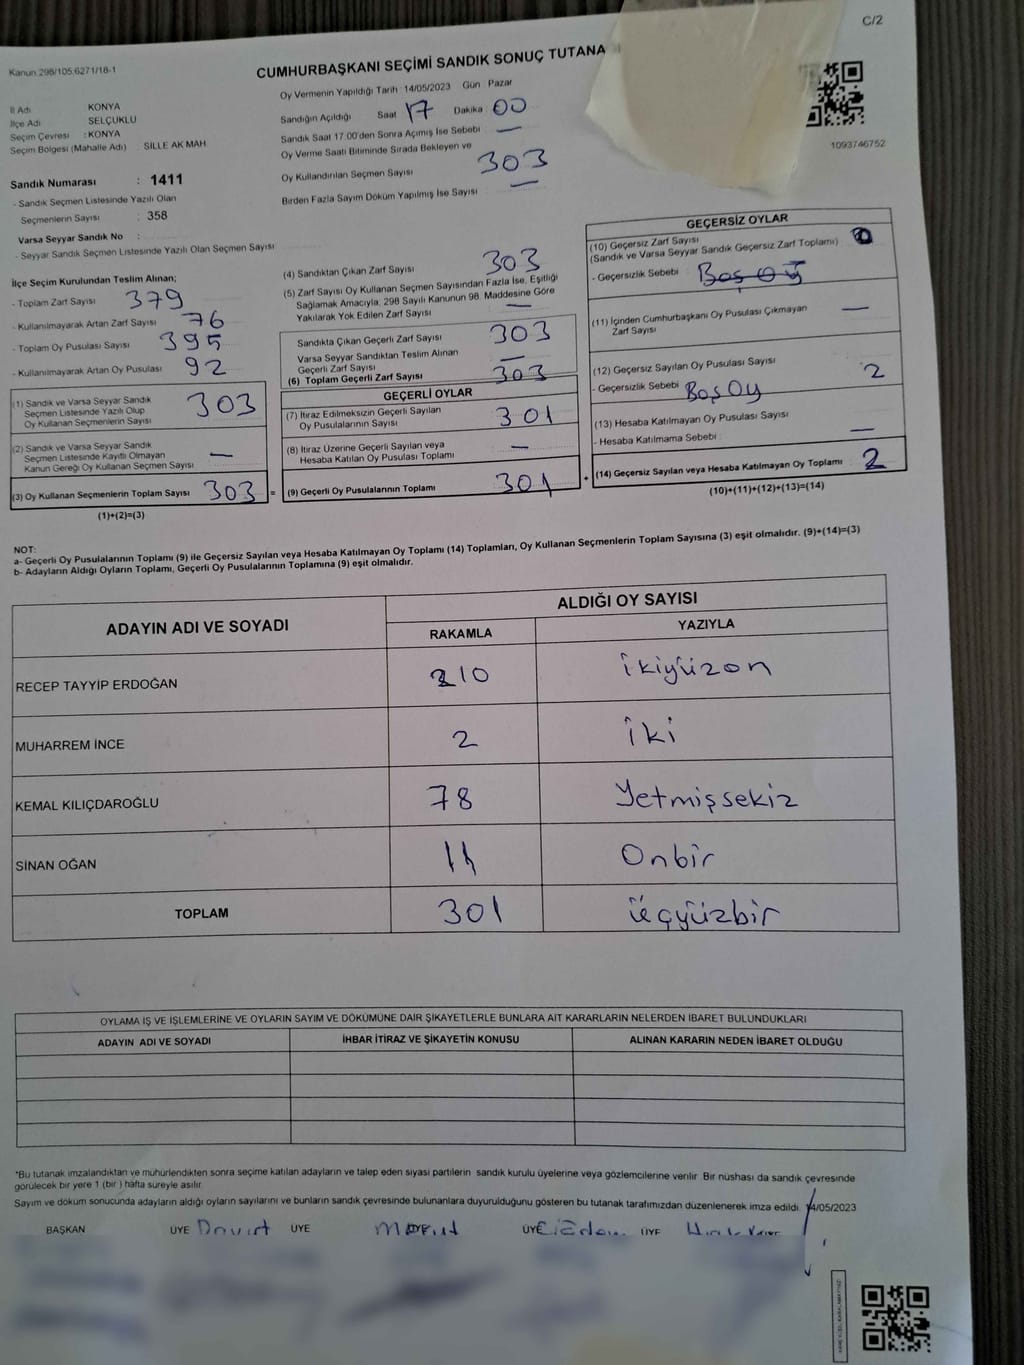 C/2
Kanun 298/105.6271/18-1
CUMHURBAŞKANI SEÇİMİ SANDIK SONUÇ TUTANA
Oy Vermenin Yapıldığı Tarih 14/05/2023 Gün Pazar
İl Adı KONYA
İlçe Adı SELÇUKLU
Seçim Çevresi : KONYA
Seçim Bölgesi (Mahalle Adı) SİLLE AK MAH
Sandığın Açıldığı Saat 17 Dakika 00
Sandık Saat 17.00'den Sonra Açımış İse Sebebi —
Oy Verme Saati Bitiminde Sırada Bekleyen ve
Oy Kullandırılan Seçmen Sayısı 303
Birden Fazla Sayım Döküm Yapılmış İse Sayısı —
1093746752
Sandık Numarası : 1411
- Sandık Seçmen Listesinde Yazılı Olan
Seçmenlerin Sayısı : 358
Varsa Seyyar Sandık No :
- Seyyar Sandık Seçmen Listesinde Yazılı Olan Seçmen Sayısı
İlçe Seçim Kurulundan Teslim Alınan;
- Toplam Zarf Sayısı 379
- Kullanılmayarak Artan Zarf Sayısı 76
- Toplam Oy Pusulası Sayısı 395
- Kullanılmayarak Artan Oy Pusulası 92
(1) Sandık ve Varsa Seyyar Sandık
Seçmen Listesinde Yazılı Olup
Oy Kullanan Seçmenlerin Sayısı 303
(2) Sandık ve Varsa Seyyar Sandık
Seçmen Listesinde Kayıtlı Olmayan
Kanun Gereği Oy Kullanan Seçmen Sayısı —
(3) Oy Kullanan Seçmenlerin Toplam Sayısı 303 =
(1)+(2)=(3)
(4) Sandıktan Çıkan Zarf Sayısı 303
(5) Zarf Sayısı Oy Kullanan Seçmen Sayısından Fazla İse, Eşitliği
Sağlamak Amacıyla, 298 Sayılı Kanunun 98. Maddesine Göre
Yakılarak Yok Edilen Zarf Sayısı —
Sandıkta Çıkan Geçerli Zarf Sayısı 303
Varsa Seyyar Sandıktan Teslim Alınan
Geçerli Zarf Sayısı —
(6) Toplam Geçerli Zarf Sayısı 303
GEÇERLİ OYLAR
(7) İtiraz Edilmeksizin Geçerli Sayılan
Oy Pusulalarının Sayısı 301
(8) İtiraz Üzerine Geçerli Sayılan veya
Hesaba Katılan Oy Pusulası Toplamı —
(9) Geçerli Oy Pusulalarının Toplamı 301 +
GEÇERSİZ OYLAR
(10) Geçersiz Zarf Sayısı
(Sandık ve Varsa Seyyar Sandık Geçersiz Zarf Toplamı) 0
- Geçersizlik Sebebi : Boş Oy
(11) İçinden Cumhurbaşkanı Oy Pusulası Çıkmayan
Zarf Sayısı —
(12) Geçersiz Sayılan Oy Pusulası Sayısı 2
- Geçersizlik Sebebi : Boş Oy
(13) Hesaba Katılmayan Oy Pusulası Sayısı —
- Hesaba Katılmama Sebebi :
(14) Geçersiz Sayılan veya Hesaba Katılmayan Oy Toplamı 2
(10)+(11)+(12)+(13)=(14)
NOT:
a- Geçerli Oy Pusulalarının Toplamı (9) ile Geçersiz Sayılan veya Hesaba Katılmayan Oy Toplamı (14) Toplamları, Oy Kullanan Seçmenlerin Toplam Sayısına (3) eşit olmalıdır. (9)+(14)=(3)
b- Adayların Aldığı Oyların Toplamı, Geçerli Oy Pusulalarının Toplamına (9) eşit olmalıdır.
ADAYIN ADI VE SOYADI
ALDIĞI OY SAYISI
RAKAMLA YAZIYLA
RECEP TAYYİP ERDOĞAN 210 ikiyüzon
MUHARREM İNCE 2 iki
KEMAL KILIÇDAROĞLU 78 Yetmişsekiz
SİNAN OĞAN 11 Onbir
TOPLAM 301 üçyüzbir
OYLAMA İŞ VE İŞLEMLERİNE VE OYLARIN SAYIM VE DÖKÜMÜNE DAİR ŞİKAYETLERLE BUNLARA AİT KARARLARIN NELERDEN İBARET BULUNDUKLARI
ADAYIN ADI VE SOYADI İHBAR İTİRAZ VE ŞİKAYETİN KONUSU ALINAN KARARIN NEDEN İBARET OLDUĞU
*Bu tutanak imzalandıktan ve mühürlendikten sonra seçime katılan adayların ve talep eden siyasi partilerin sandık kurulu üyelerine veya gözlemcilerine verilir. Bir nüshası da sandık çevresinde
görülecek bir yere 1 (bir) hafta süreyle asılır.
Sayım ve döküm sonucunda adayların aldığı oyların sayılarını ve bunların sandık çevresinde bulunanlara duyurulduğunu gösteren bu tutanak tarafımızdan düzenlenerek imza edildi. 14/05/2023
BAŞKAN ÜYE ÜYE ÜYE ÜYE